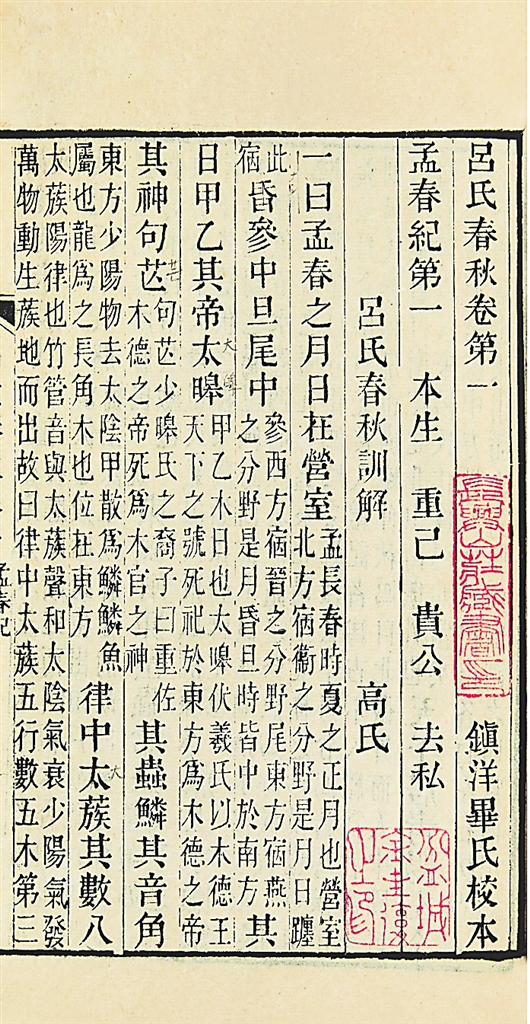 呂氏春秋卷第一 鎮洋畢氏校本
孟春紀第一 本生 重己 貴公 去私
呂氏春秋訓解 高氏
一曰孟春之月日在營室
孟長春時夏之正月也營室
北方宿衞之分野是月日躔
此
宿
昏參中旦尾中
參西方宿晉之分野尾東方宿燕
之分野是月昏旦時皆中於南方
其
日甲乙其帝太皞
甲乙木日也太皞伏羲氏以木德王
天下之號死祀於東方爲木德之帝
其神句芒
句芒少皞氏之裔子曰重佐
木德之帝死爲木官之神
其蟲鱗其音角
東方少陽物去太陰甲散爲鱗鱗魚
屬也龍爲之長角木也位在東方
律中太蔟其數八
太蔟陽律也竹管音與太蔟聲和太陰氣衰少陽氣發
萬物動生蔟地而出故曰律中太蔟五行數五木第三
孟春紀